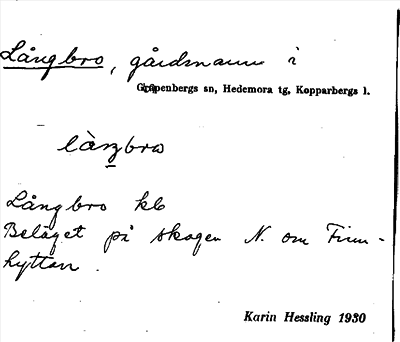 Långbro, gårdsnamn i
Grapenbergs sn, Hedemora tg, Kopparbergs l.
Långbro kb
Beläget på skogen N. om Finn-
hyttan.
Karin Hessling 1930